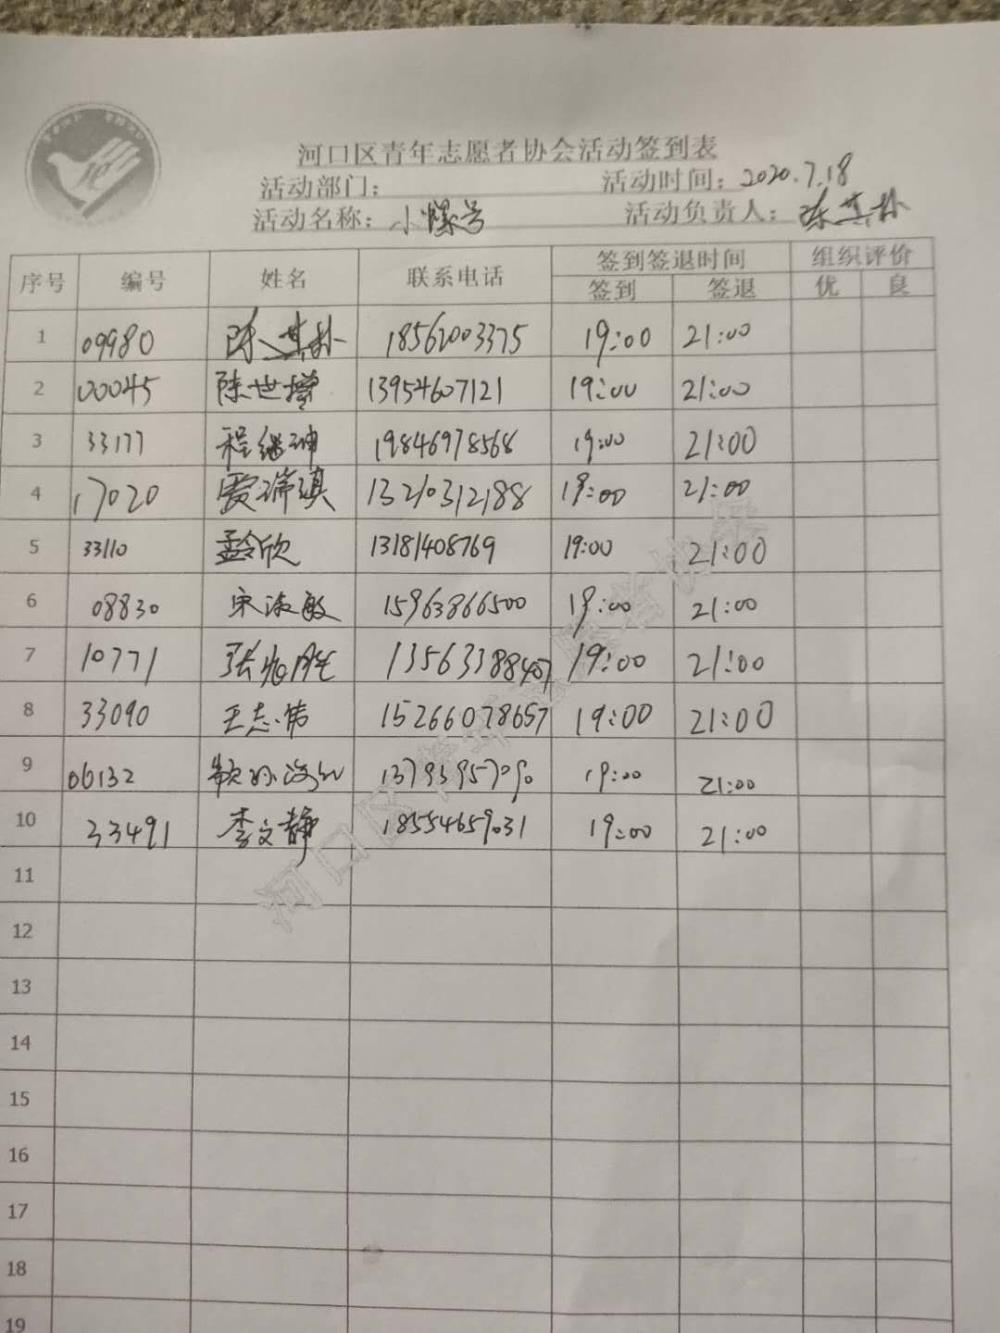 河口区青年志愿者协会活动签到表
活动部门： 活动时间：2020.7.18
活动名称：小蝶号 活动负责人：陈其朴
序号 编号 姓名 联系电话 签到签退时间 组织评价
签到 签退 优 良
1 09980 陈其朴 18562003375 19:00 21:00
2 00045 陈世增 13954607121 19:00 21:00
3 33177 程继坤 19846978568 19:00 21:00
4 17020 贾瑞祺 13210312188 19:00 21:00
5 33110 孟令欣 13181408769 19:00 21:00
6 08830 宋淑敏 15963866500 19:00 21:00
7 10771 张兆胜 13563388407 19:00 21:00
8 33090 王志伟 15266078657 19:00 21:00
9 06132 13793957090 19:00 21:00
10 33491 李文静 18554659031 19:00 21:00
11
12
13
14
15
16
17
18
19
河口区青年志愿者协会